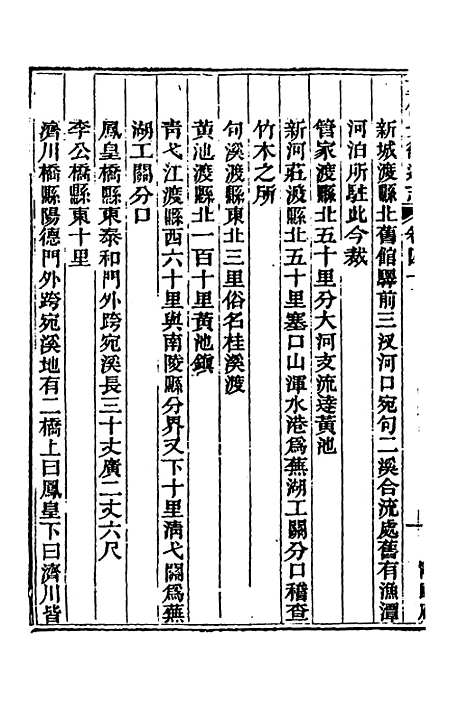 新城渡縣北舊館驛前三汊河口宛句二溪合流處舊有漁潭
河泊所駐此今裁
管家渡縣北五十里分大河支流達黃池
新河莊渡縣北五十里塞口山渾水港爲蕪湖工關分口稽查
竹木之所
句溪渡縣東北三里俗名桂溪渡
黃池渡縣北一百十里黃池鎭
靑弋江渡縣西六十里與南陵縣分界又下十里淸弋關爲蕪
湖工關分口
鳳皇橋縣東泰和門外跨宛溪長三十丈廣二丈六尺
李公橋縣東十里
濟川橋縣陽德門外跨宛溪地有二橋上曰鳳皇下曰濟川皆